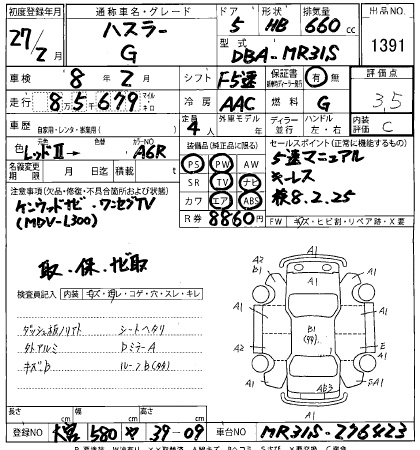 初度登録年月 通称車名・グレード ドア 形状 排気量 出品NO
27/2月 ハスラー G 5 HB 660 cc
型式 DBA-MR31S 1391
車検 8年2月 シフト F5速 保証書 有 無 評価点
走行 85,679 マイル キロ 冷房 AAC 燃料 G 3.5
車歴 自家用・レンタ・事業用( ) 定員 4人 外車モデル 年 ディーラー 並行 ハンドル 左・右 内装 C
色 元色 レッドⅡ→ 色替 カラーNO A6R 装備品(純正に限る) セールスポイント(正常に機能するもの)
名義変更期限 月 日迄 積載 t PS PW AW 5速マニュアル
SR TV ナビ キーレス
注意事項(欠品・修復・不具合箇所および状態) カワ エア ABS 検8.2.25
ケンウッドナビ・ワンセグTV R券 8860円 FW キズ・ヒビ割・リペア跡・X要
(MDV-L300)
取・保・ナビ取
検査員記入 内装 キズ・汚レ・コゲ・穴・スレ・キレ
シートヘタリ
外アルミ DミラーA
キズb ルーフb(タタ)
A1
A2 B1 A1
A1 A1
A2 B1 (タタ) E
A1 AB3 A1
A1
長さ cm 幅 cm 高さ cm
登録NO 大宮 580 や 39-09 車台NO MR31S-276423